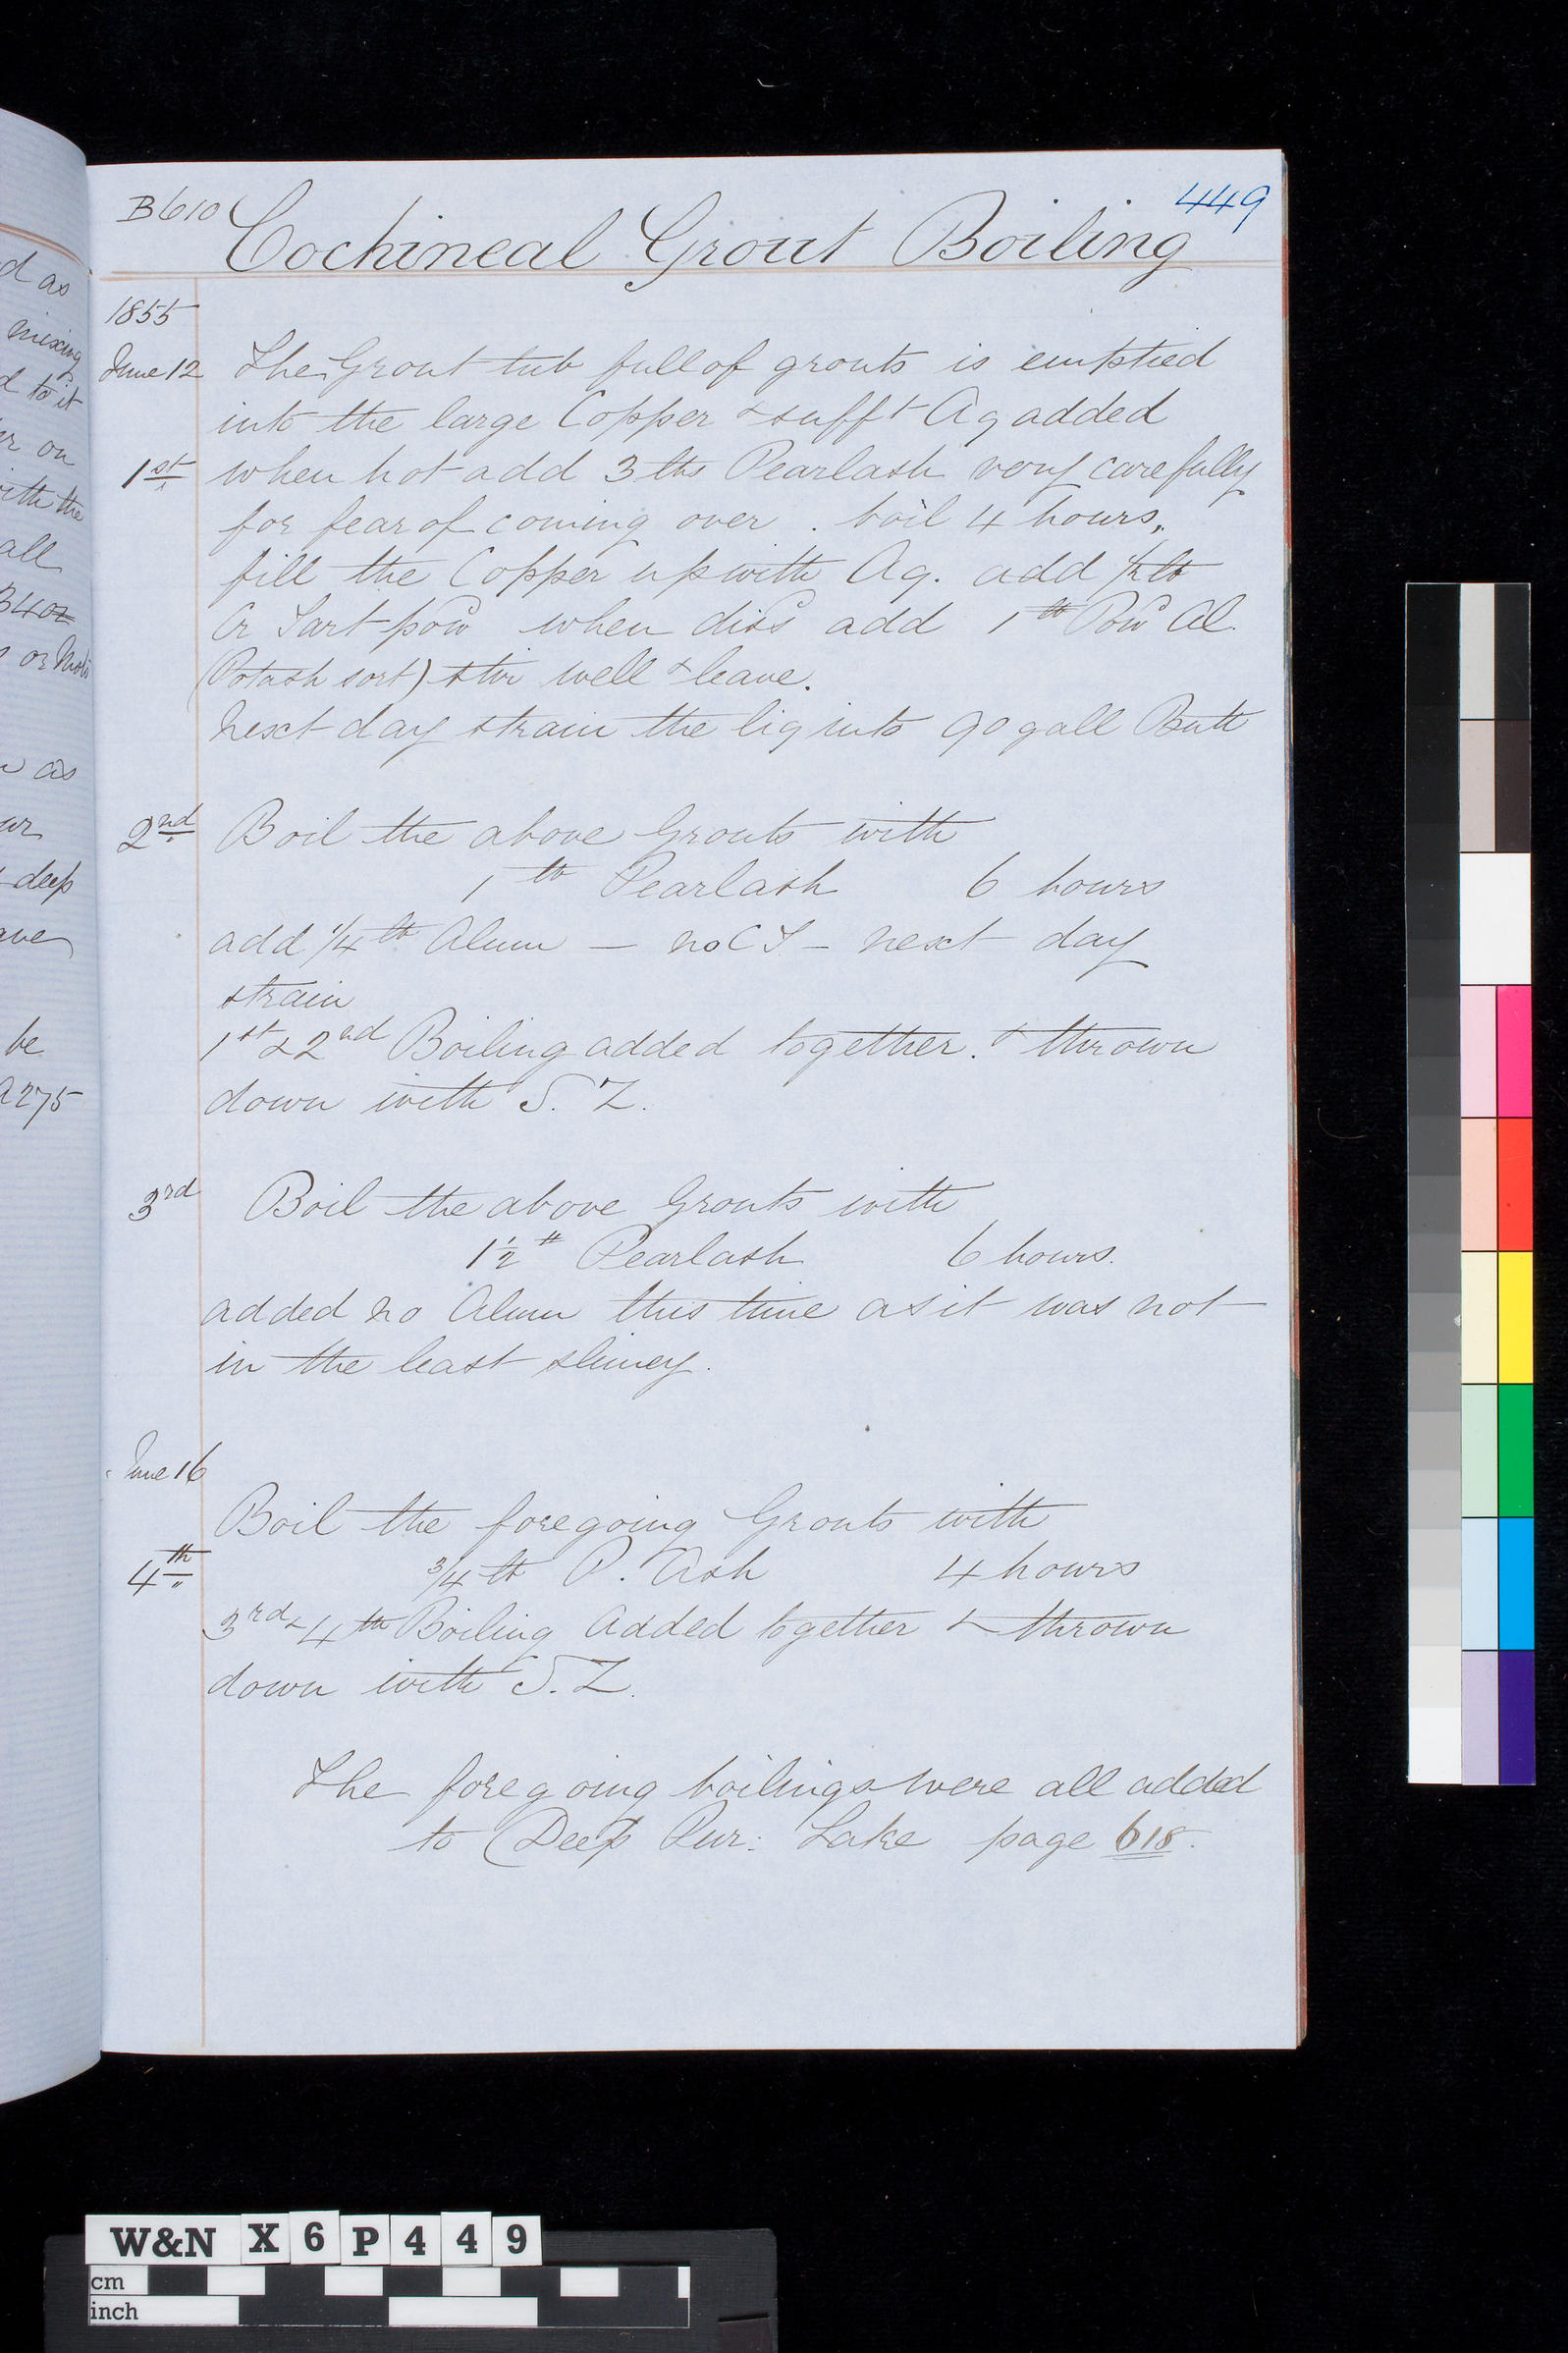 d as
mixing
d to it
er on
with the
all
B402
s or Moti
w as
ur
deep
ave
be
A275
B610
449
Cochineal Grout Boiling
1855
June 12 The Grout tub full of grouts is emptied
into the large Copper & sufft Aq added
1st when hot add 3 lbs Pearlash very carefully
for fear of coming over. boil 4 hours,
fill the Copper up with Aq. add 1/2 lb
Cr Tart powd when disd add 1 lb Powd Al.
(Potash sort) stir well & leave.
Next day strain the liq into 90 gall Butt
2nd Boil the above Grouts with
1 lb Pearlash 6 hours
add 1/4 lb Alum — no C T — next day
strain
1st & 2nd Boiling added together. & thrown
down with S. Z.
3rd Boil the above Grouts with
1 1/2 lb Pearlash 6 hours.
added no Alum this time as it was not
in the least slimey.
June 16
Boil the foregoing Grouts with
4th 3/4 lb P. Ash 4 hours
3rd & 4th Boiling Added together & thrown
down with S. Z.
The foregoing boilings were all added
to Deep Pur: Lake page 618.
W&N X 6 P 4 4 9
cm
inch